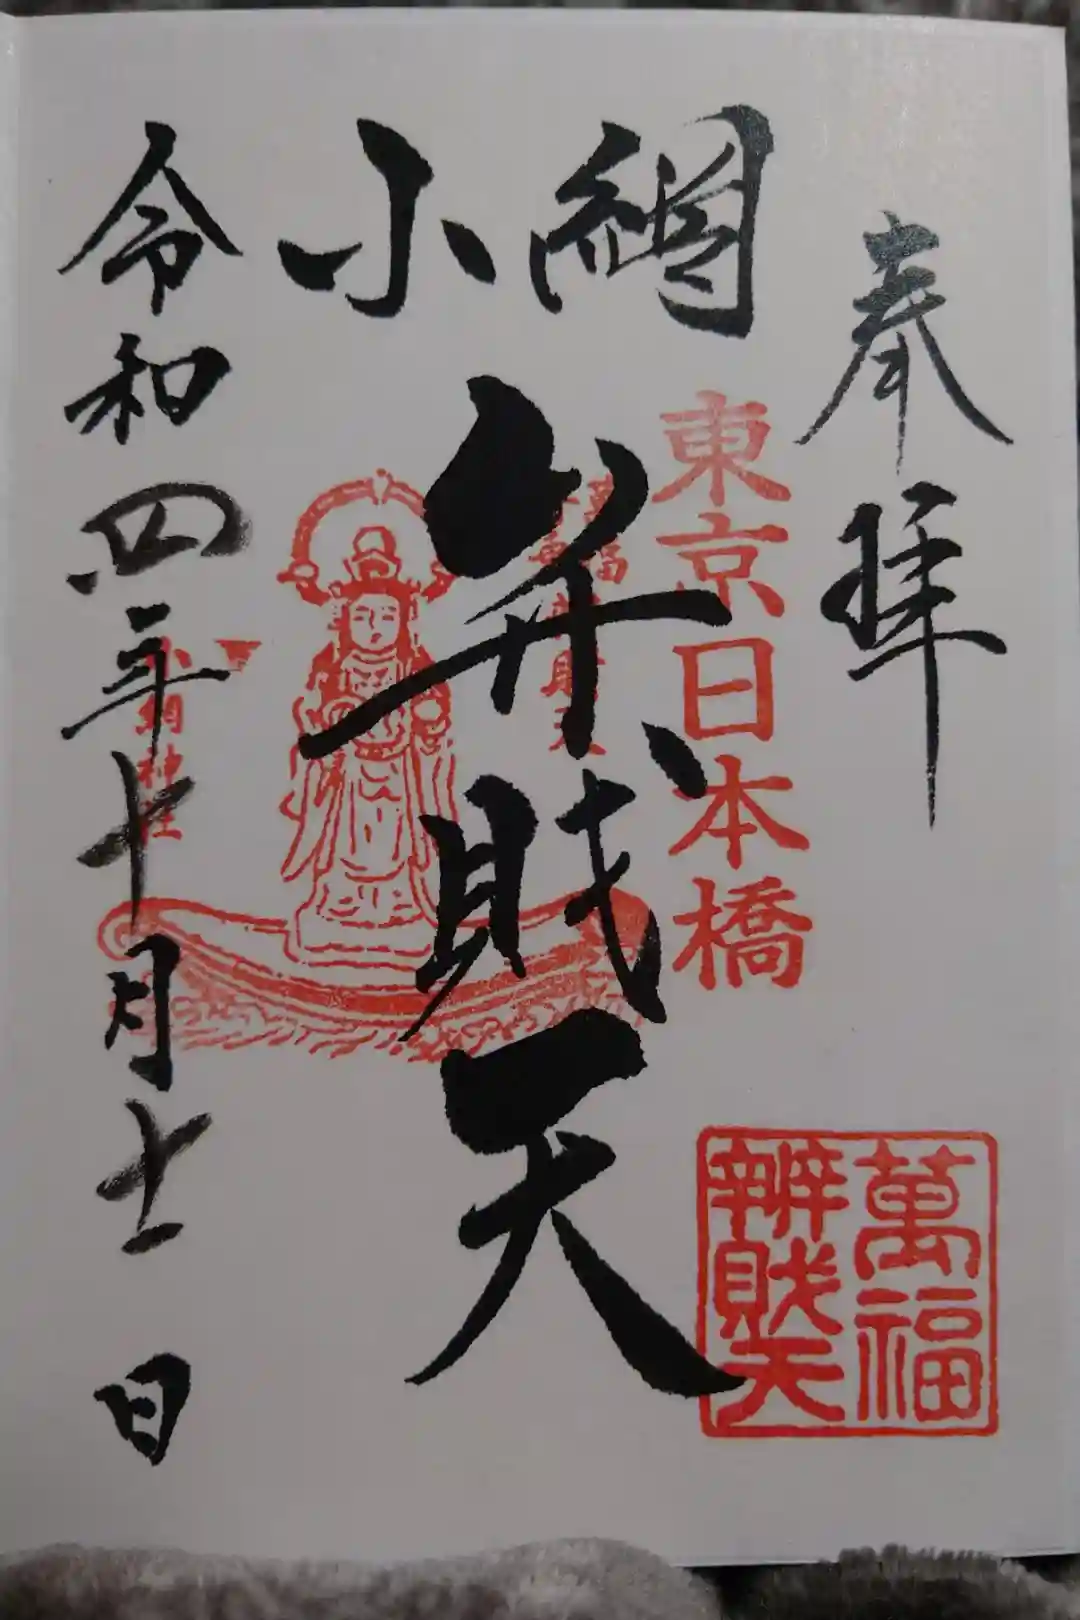 奉拝
東京日本橋
萬福
辨財天
小網
弁財天
小網神社
令和四年十月十一日